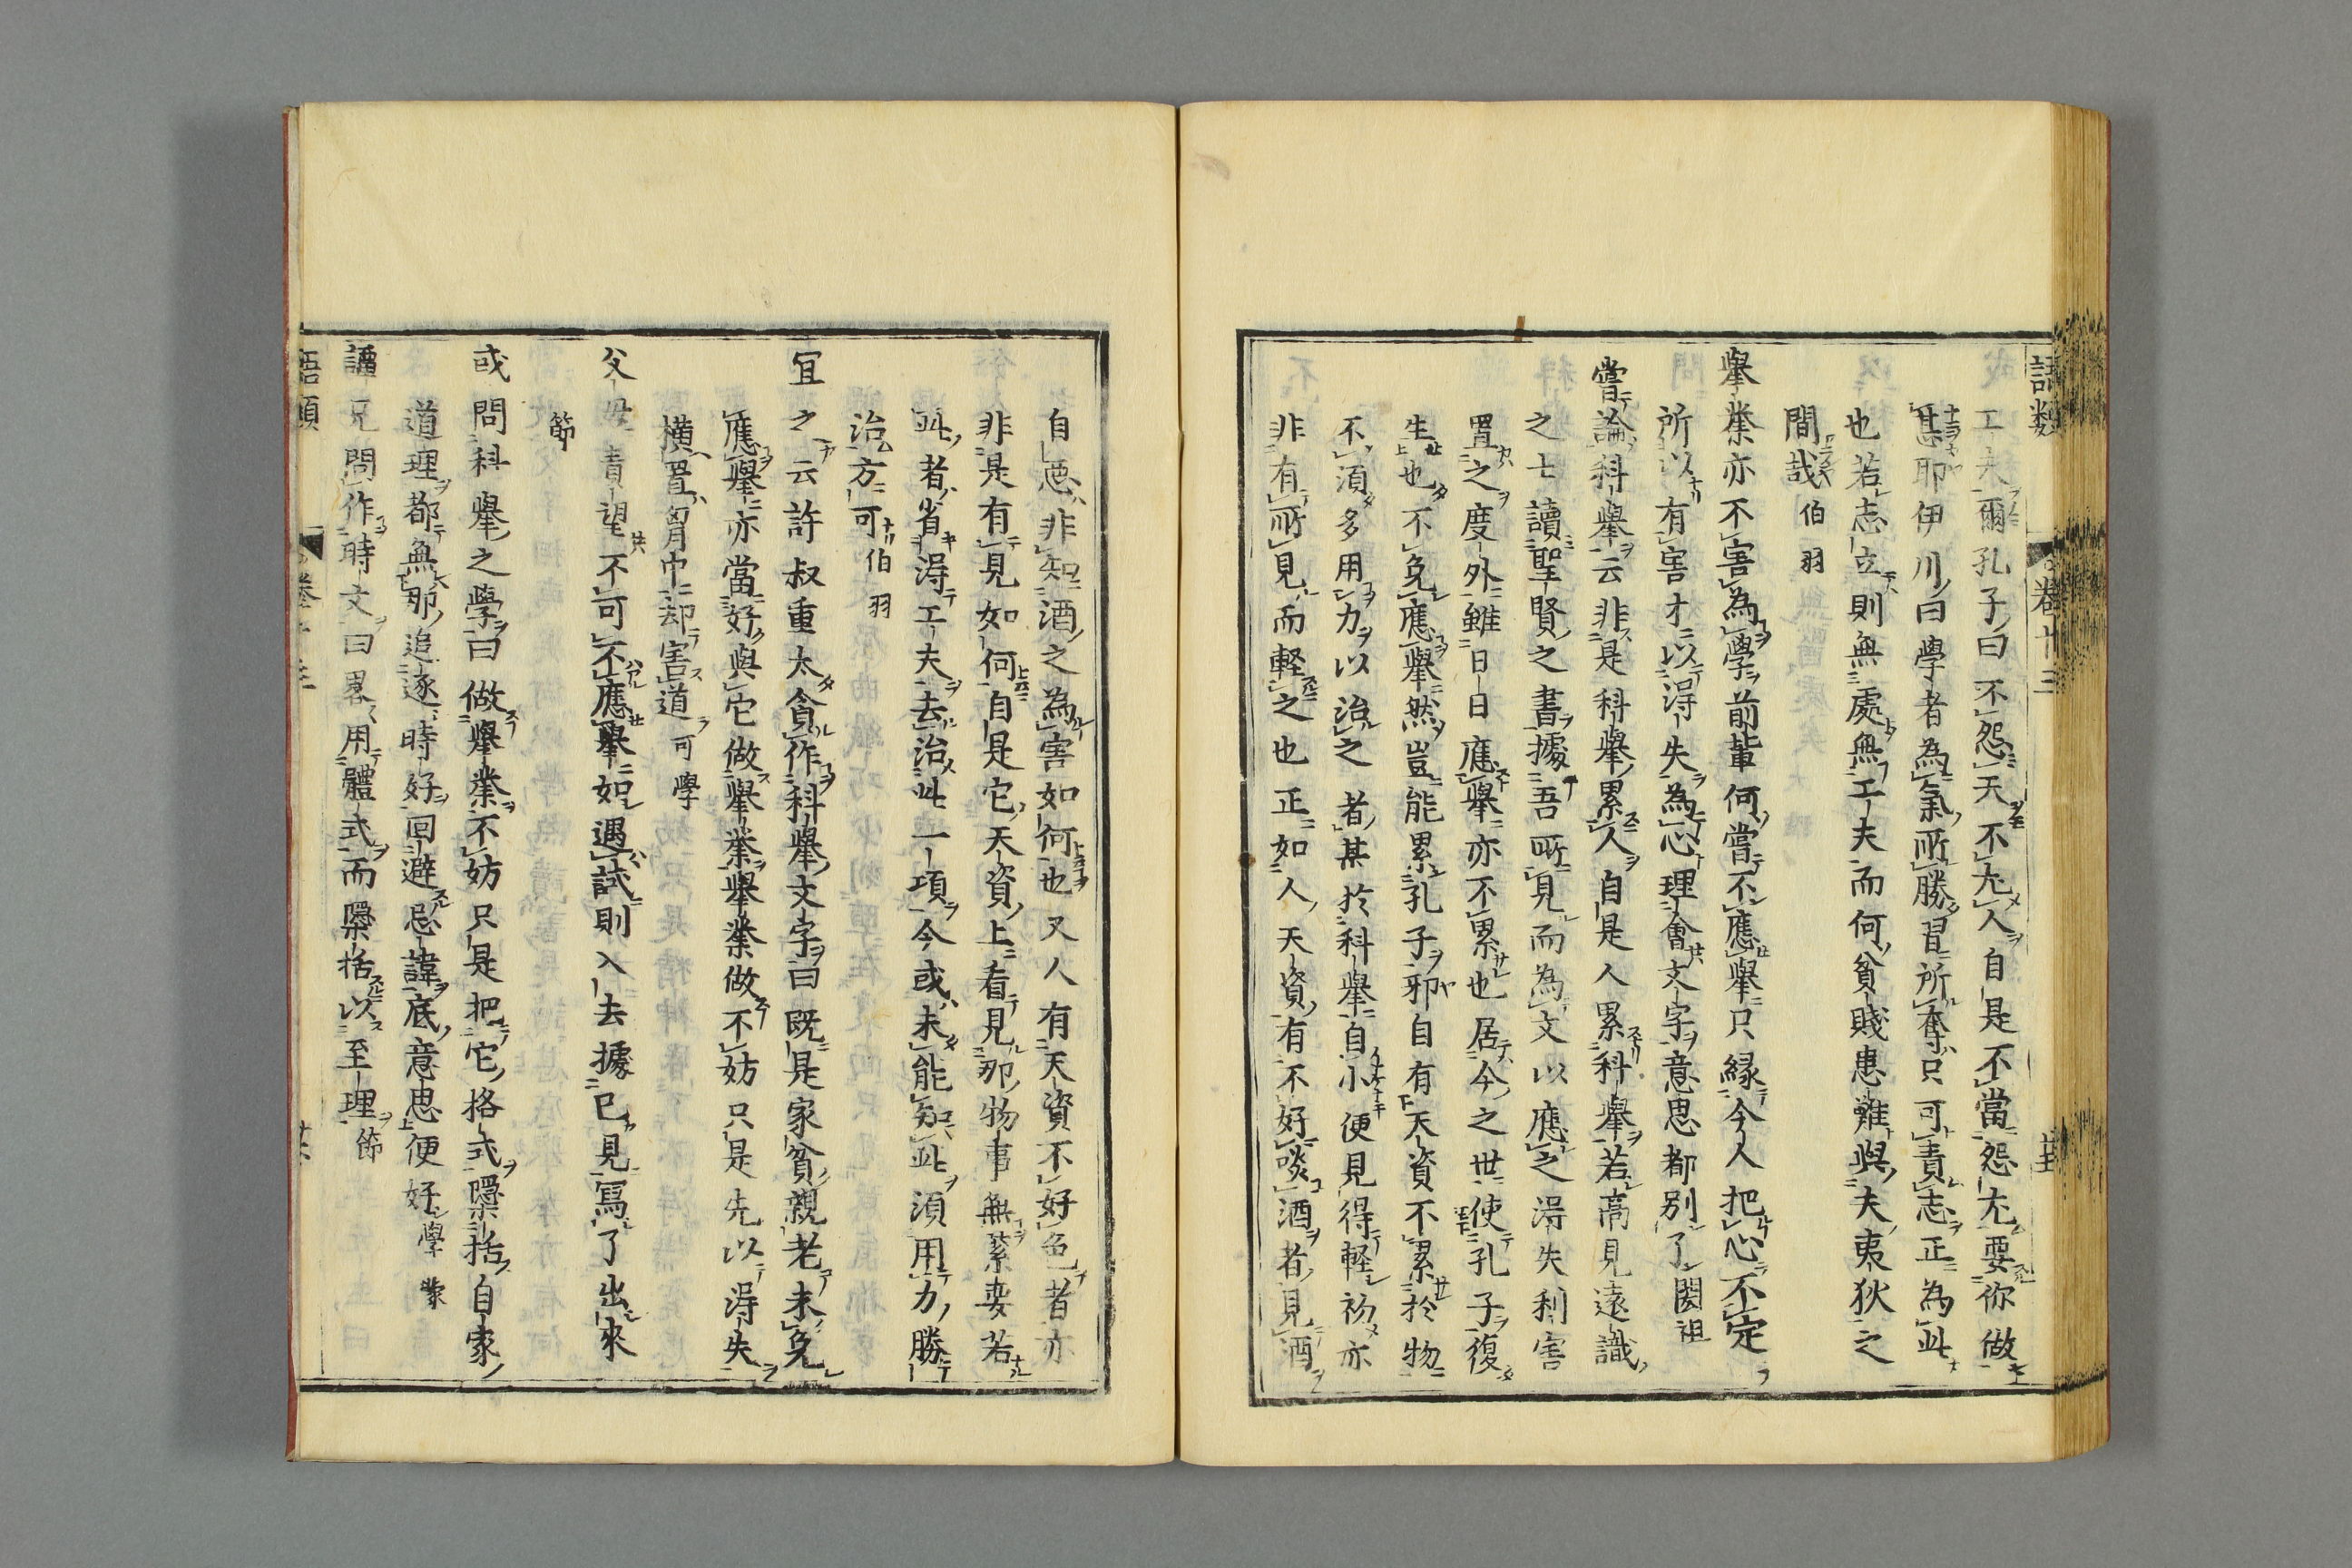 語類 卷十三 廿五
工夫爾孔子曰不怨天不尤人自是不當怨尤要你做
甚耶伊川曰學者為氣所勝習所奪只可責志正為此
也若志立則無處無工夫而何貧賤患難與夫夷狄之
間哉 伯羽
舉業亦不害為學前輩何嘗不應舉只緣今人把心不定
所以有害才以得失為心理會文字意思都別了 閎祖
嘗論科舉云非是科舉累人自是人累科舉若高見遠識
之士讀聖賢之書據吾所見而為文以應之得失利害
置之度外雖日日應舉亦不累也居今之世使孔子復
生也不免應舉然豈能累孔子邪自有天資不累於物
不須多用力以治之者某於科舉自小便見得輕初亦
非有所見而輕之也正如人天資有不好啖酒者見酒
自惡非知酒之為害如何也又人有天資不好色者亦
非是有見如何自是它天資上看見那物事無緊要若
此者省得工夫去治此一項今或未能知此須用力勝
治方可 伯羽
宜之云許叔重太貪作科舉文字曰既是家貧親老未免
應舉亦當好與它做舉業舉業做不妨只是先以得失
橫置胷中却害道 可學
父母責望不可不應舉如遇試則入去據已見寫了出來
節
或問科舉之學曰做舉業不妨只是把它格式檃括自家
道理都無那追逐時好回避忌諱底意思便好 學蒙
譚兄問作時文曰畧用體式而檃括以至理 節
語類